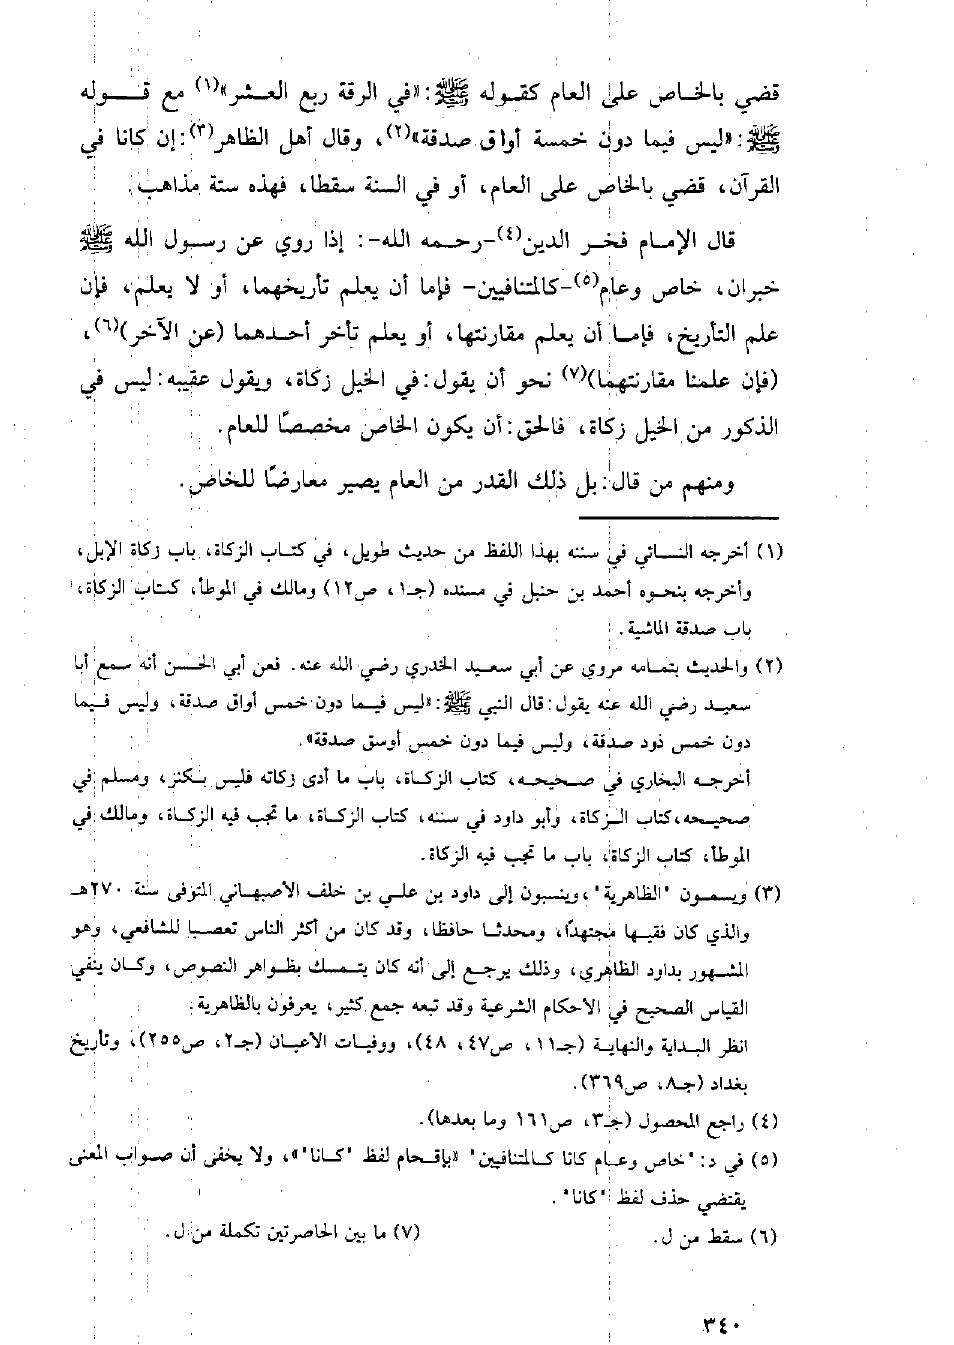 قضي بالخاص على العام كقوله ﷺ: «في الرقة ربع العشر»(١) مع قوله
ﷺ: «ليس فيما دون خمسة أواق صدقة»(٢)، وقال أهل الظاهر(٣): إن كانا في
القرآن، قضي بالخاص على العام، أو في السنة سقطا، فهذه ستة مذاهب.
قال الإمام فخر الدين(٤)-رحمه الله-: إذا روي عن رسول الله ﷺ
خبران، خاص وعام(٥)-كالمتنافيين- فإما أن يعلم تأريخهما، أو لا يعلم، فإن
علم التأريخ، فإما أن يعلم مقارنتها، أو يعلم تأخر أحدهما (عن الآخر)(٦)،
(فإن علمنا مقارنتهما)(٧) نحو أن يقول: في الخيل زكاة، ويقول عقيبه: ليس في
الذكور من الخيل زكاة، فالحق: أن يكون الخاص مخصصًا للعام.
ومنهم من قال: بل ذلك القدر من العام يصير معارضًا للخاص.
(١) أخرجه النسائي في سننه بهذا اللفظ من حديث طويل، في كتاب الزكاة، باب زكاة الإبل،
وأخرجه بنحوه أحمد بن حنبل في مسنده (جـ١، ص١٢) ومالك في الموطأ، كتاب الزكاة،
باب صدقة الماشية.
(٢) والحديث بتمامه مروي عن أبي سعيد الخدري رضي الله عنه. فعن أبي الحسن أنه سمع أبا
سعيد رضي الله عنه يقول: قال النبي ﷺ: «ليس فيما دون خمس أواق صدقة، وليس فيما
دون خمس ذود صدقة، وليس فيما دون خمس أوسق صدقة».
أخرجه البخاري في صحيحه، كتاب الزكاة، باب ما أدى زكاته فليس بكنز، ومسلم في
صحيحه، كتاب الزكاة، وأبو داود في سننه، كتاب الزكاة، ما تجب فيه الزكاة، ومالك في
الموطأ، كتاب الزكاة، باب ما تجب فيه الزكاة.
(٣) ويسمون "الظاهرية"، وينسبون إلى داود بن علي بن خلف الأصبهاني المتوفى سنة ٢٧٠هـ
والذي كان فقيها مجتهدًا، ومحدثا حافظا، وقد كان من أكثر الناس تعصبا للشافعي، وهو
المشهور بداود الظاهري، وذلك يرجع إلى أنه كان يتمسك بظواهر النصوص، وكان ينفي
القياس الصحيح في الأحكام الشرعية وقد تبعه جمع كثير، يعرفون بالظاهرية.
انظر البداية والنهاية (جـ١١، ص٤٧، ٤٨)، ووفيات الأعيان (جـ٢، ص٢٥٥)، وتأريخ
بغداد (جـ٨، ص٣٦٩).
(٤) راجع المحصول (جـ٣، ص١٦١ وما بعدها).
(٥) في د: "خاص وعام كانا كالمتنافيين" «بإقحام لفظ "كانا"»، ولا يخفى أن صواب المعنى
يقتضي حذف لفظ "كانا".
(٦) سقط من ل. (٧) ما بين الحاصرتين تكملة من ل.
٣٤٠